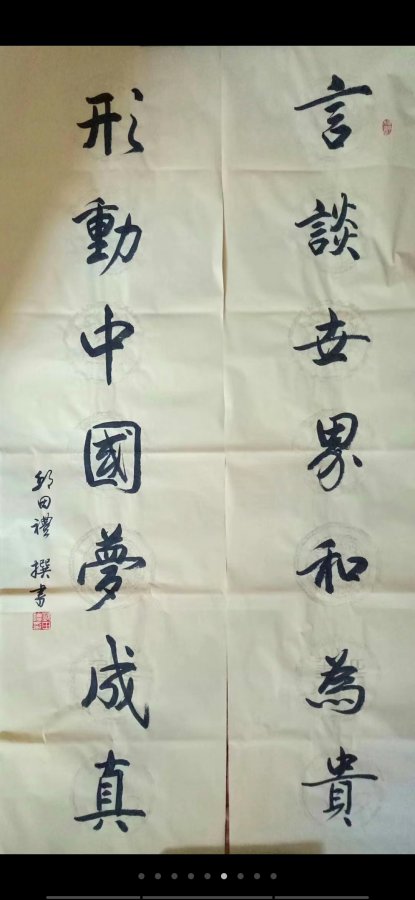 言談世界和為貴
形動中國夢成真
田禮 撰書